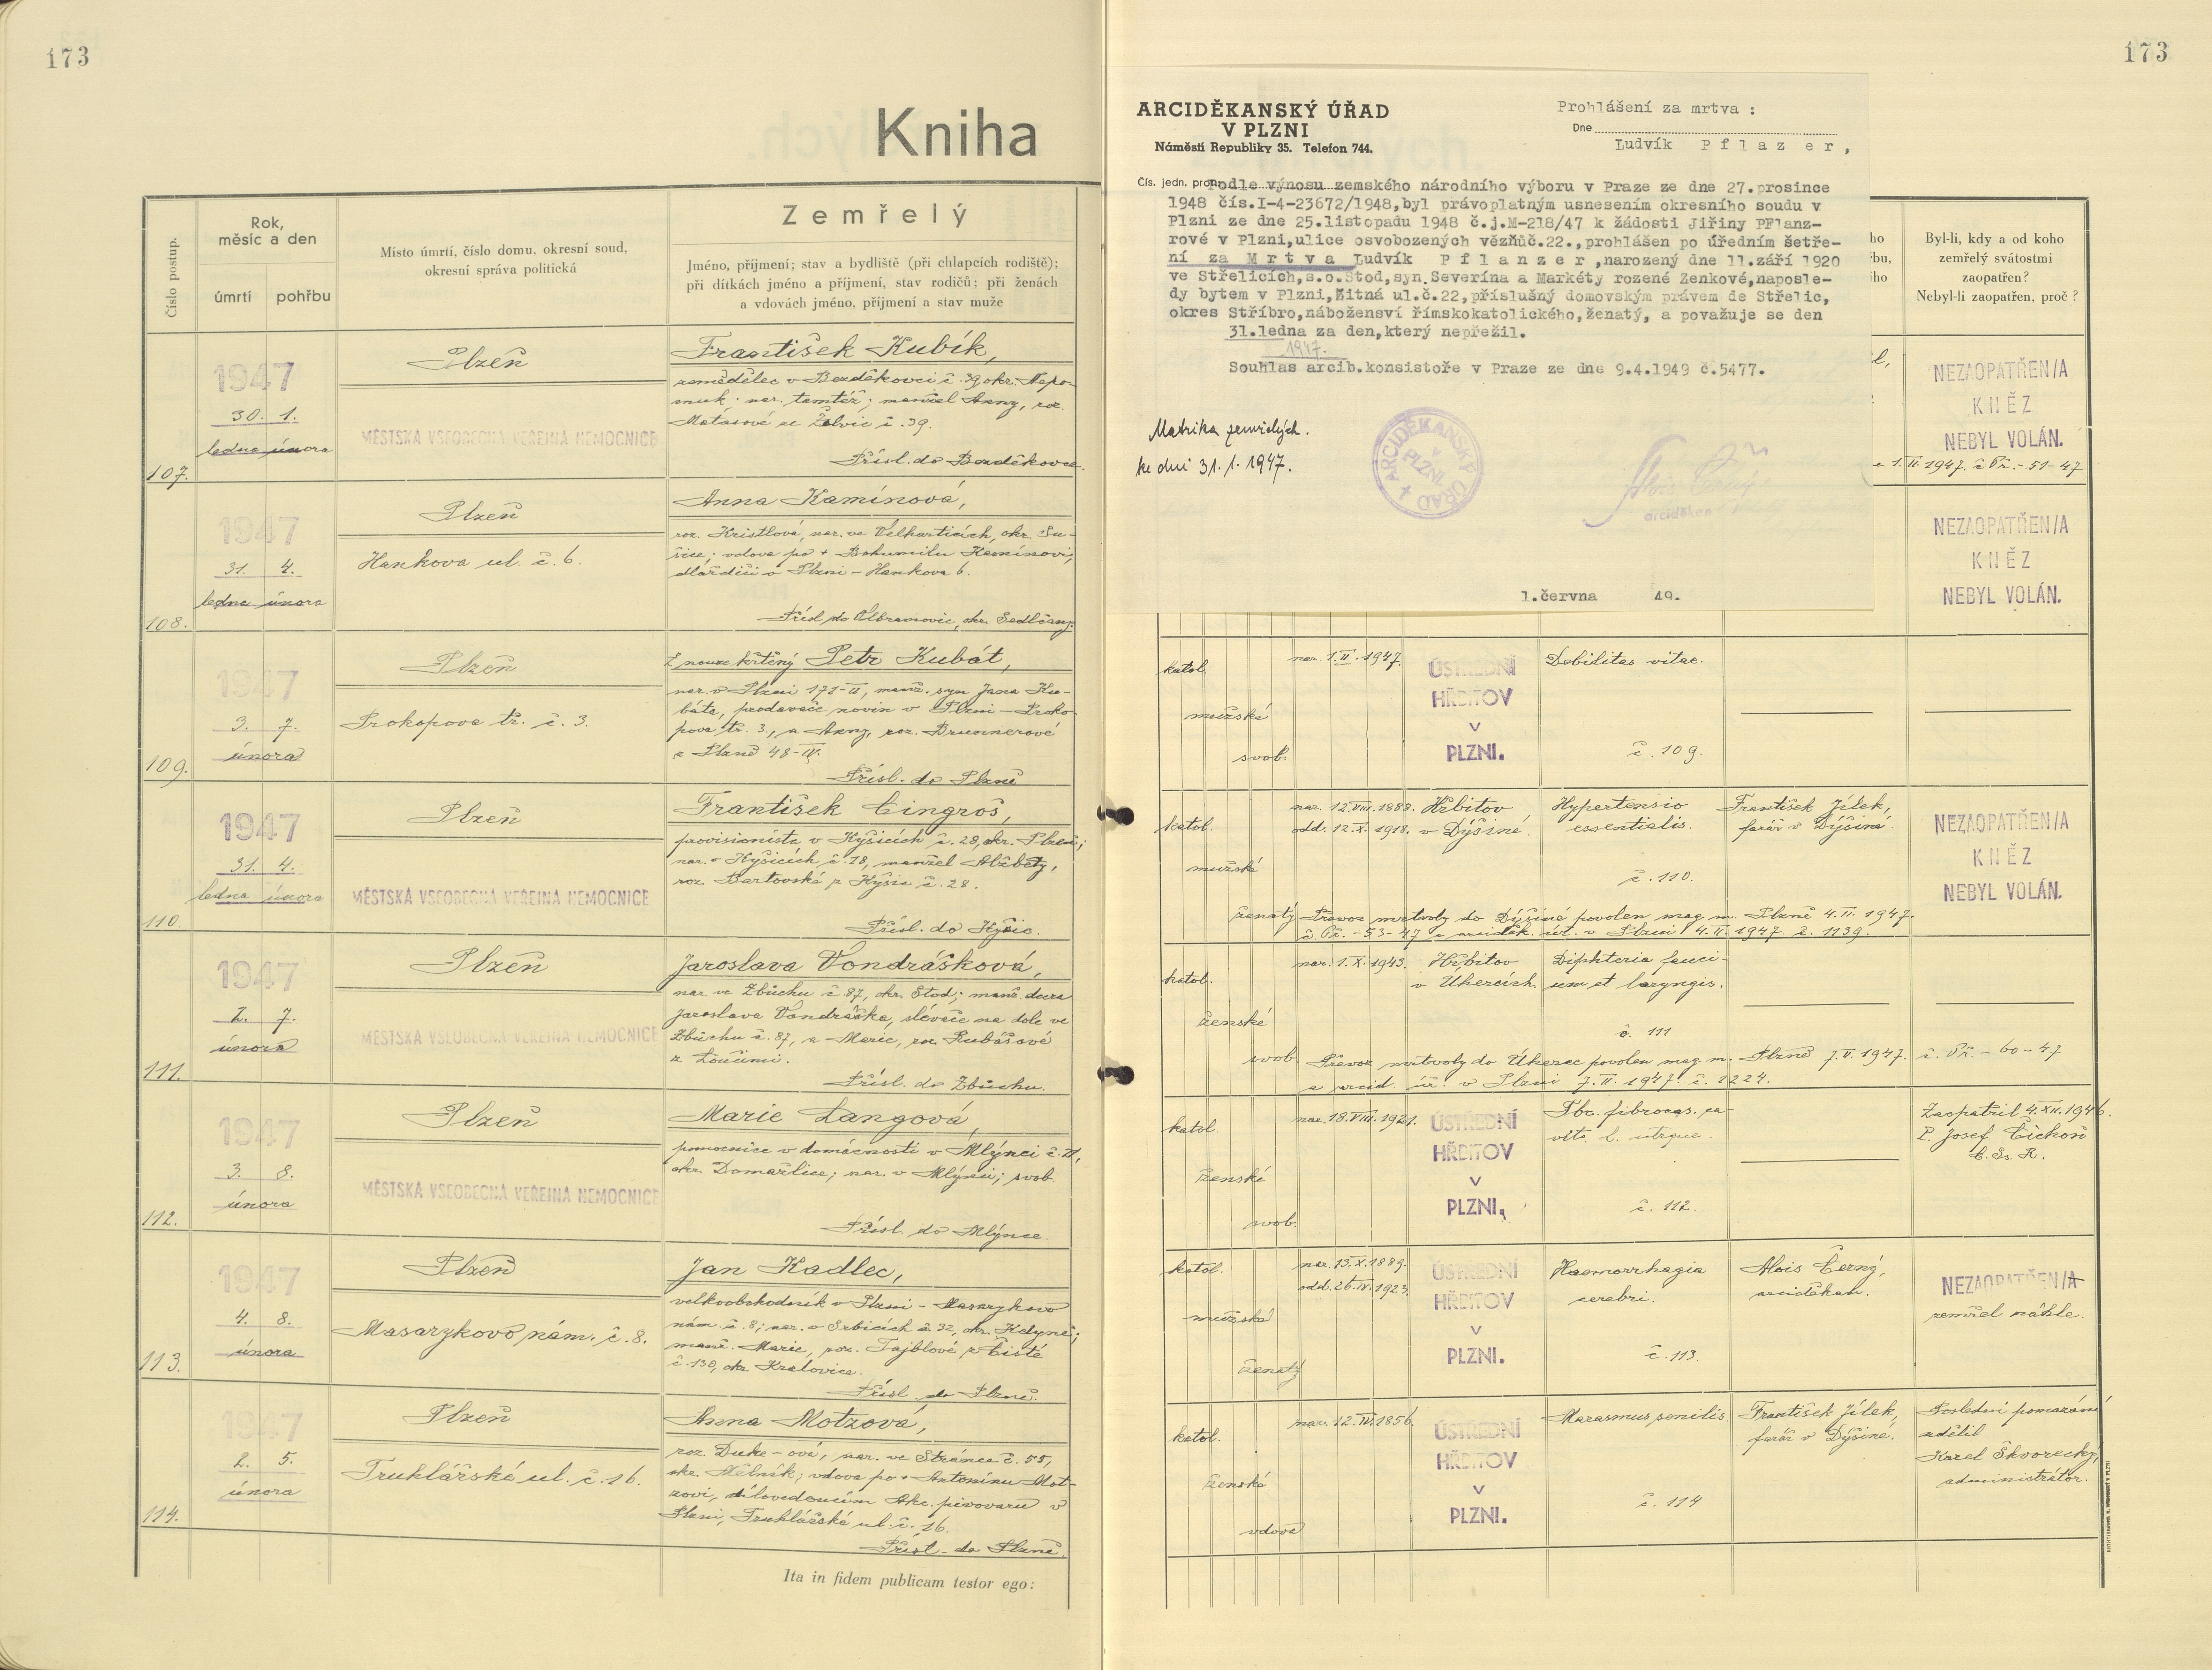 173
Kniha
Číslo postup.
Rok,
měsíc a den
úmrtí
pohřbu
Místo úmrtí, číslo domu, okresní soud,
okresní správa politická
Zemřelý
Jméno, příjmení; stav a bydliště (při chlapcích rodiště);
při dítkách jméno a příjmení, stav rodičů; při ženách
a vdovách jméno, příjmení a stav muže
107.
1947
30. 1.
ledna února
Plzeň
MĚSTSKÁ VŠEOBECNÁ VEŘEJNÁ NEMOCNICE
František Kubík,
zemědělec v Bezděkovci č. 39 okr. Nepo-
muk; nar. tamtéž; manžel Anny, roz.
Matasové ze Želvic č. 39.
Přísl. do Bezděkovce.
108.
1947
31. 4.
ledna února
Plzeň
Hankova ul. č. 6.
Anna Kamínová,
roz. Kristlová, nar. ve Velharticích, okr. Su-
šice; vdova po + Bohumilu Kamínovi,
dlaždiči v Plzni - Hankova 6.
Přísl. do Olbramovic, okr. Sedlčany.
109.
1947
3. 7.
února
Plzeň
Prokopova tř. č. 3.
Z nouze křtěný Petr Kubát,
nar. v Plzni 171-II, manž. syn Jana Ku-
báta, prodavače novin v Plzni - Proko-
pova tř. 3., a Anny, roz. Brumnerové
z Plzně 48-IV.
Přísl. do Plzně
110.
1947
31. 4.
ledna února
Plzeň
MĚSTSKÁ VŠEOBECNÁ VEŘEJNÁ NEMOCNICE
František Cingroš,
provisionista v Kyšicích č. 28, okr. Plzeň;
nar. v Kyšicích č. 18, manžel Alžběty,
roz. Bartovské z Kyšic č. 28.
Přísl. do Kyšic.
111.
1947
2. 7.
února
Plzeň
MĚSTSKÁ VŠEOBECNÁ VEŘEJNÁ NEMOCNICE
Jaroslava Vondrášková,
nar. ve Zbůchu č. 87, okr. Stod; manž. dcera
Jaroslava Vondráška, slévače na dole ve
Zbůchu č. 87, a Marie, roz. Rubášové
z Loučimi.
Přísl. do Zbůchu.
112.
1947
3. 8.
února
Plzeň
MĚSTSKÁ VŠEOBECNÁ VEŘEJNÁ NEMOCNICE
Marie Langová,
pomocnice v domácnosti v Mlýnci č. 21,
okr. Domažlice; nar. v Mlýnci; svob.
Přísl. do Mlýnce.
113.
1947
4. 8.
února
Plzeň
Masarykovo nám. č. 8.
Jan Kadlec,
velkoobchodník v Plzni - Masarykovo
nám. č. 8; nar. v Srbicích č. 32, okr. Kdyně;
manž. Marie, roz. Tajblové z Čisté
č. 130, okr. Kralovice.
Přísl. do Plzně.
114.
1947
2. 5.
února
Plzeň
Truhlářská ul. č. 16.
Anna Motzová,
roz. Duke-ová, nar. ve Stránce č. 55,
okr. Mělník; vdova po + Antonínu Mot-
zovi, dílovedoucím Akc. pivovaru v
Plzni, Truhlářská ul. č. 16.
Přísl. do Plzně.
Ita in fidem publicam testor ego:
173
ARCIDĚKANSKÝ ÚŘAD
V PLZNI
Náměstí Republiky 35. Telefon 744.
Prohlášení za mrtva :
Dne
Ludvík P f l a z e r ,
Čís. jedn. pron.
Podle výnosu zemského národního výboru v Praze ze dne 27.prosince
1948 čís.I-4-23672/1948,byl právoplatným usnesením okresního soudu v
Plzni ze dne 25.listopadu 1948 č.j.M-218/47 k žádosti Jiřiny PFlanz-
rové v Plzni,ulice osvobozených vězňůč.22.,prohlášen po úředním šetře-
ní za M r t v a Ludvík P f l a n z e r ,narozený dne 11.září 1920
ve Střelicích,s.o.Stod,syn Severína a Markéty rozené Zenkové,naposle-
dy bytem v Plzni,Žitná ul.č.22,příslušný domovským právem de Střelic,
okres Stříbro,nábožensví římskokatolického,ženatý, a považuje se den
31.ledna za den,který nepřežil.
1947.
Souhlas arcib.konsistoře v Praze ze dne 9.4.1949 č.5477.
Matrika zemřelých.
ke dni 31. 1. 1947.
ARCIDĚKANSKÝ ÚŘAD
V
PLZNI
Alois Černý
arciděkan
1.června 49.
Byl-li, kdy a od koho
zemřelý svátostmi
zaopatřen?
Nebyl-li zaopatřen, proč ?
NEZAOPATŘEN/A
KNĚZ
NEBYL VOLÁN.
1. II. 1947. č Př. - 51 - 47
NEZAOPATŘEN/A
KNĚZ
NEBYL VOLÁN.
katol.
mužské
svob.
nar. 1. II. 1947.
ÚSTŘEDNÍ
HŘBITOV
V
PLZNI.
Debilitas vitae.
č. 109.
katol.
mužské
ženatý
nar. 12. VIII. 1888.
odd. 12. X. 1918.
Hřbitov
v Dýšiné.
Hypertensio
essentialis.
č. 110.
František Jílek,
farář v Dýšině.
NEZAOPATŘEN/A
KNĚZ
NEBYL VOLÁN.
Převoz mrtvoly do Dýšiné povolen mag. m. Plzně 4. II. 1947.
č. Př. - 53 - 47 a arciděk. úř. v Plzni 4. II. 1947. č. 1139.
katol.
ženské
svob.
nar. 1. X. 1943.
Hřbitov
v Úhercích
Diphteria fauci-
um et laryngis.
č. 111
Převoz mrtvoly do Úherec povolen mag. m. Plzně 7. II. 1947. č. Př. - 60 - 47
a arcid. úř. v Plzni 7. II. 1947. č. 1224.
katol.
ženské
svob.
nar. 18. VIII. 1921.
ÚSTŘEDNÍ
HŘBITOV
V
PLZNI.
Tbc. fibrocas. ca-
vita l. utrque.
č. 112.
Zaopatřil 4. XII. 1946.
P. Josef Čickoň
C. Ss. R.
katol.
mužské
ženatý
nar. 13. X. 1889.
odd. 26. IV. 1923.
ÚSTŘEDNÍ
HŘBITOV
V
PLZNI.
Haemorrhagia
cerebri.
č. 113.
Alois Černý,
arciděkan.
NEZAOPATŘEN/A
zemřel náhle.
katol.
ženské
vdova
nar. 12. IV. 1856.
ÚSTŘEDNÍ
HŘBITOV
V
PLZNI.
Marasmus senilis.
č. 114
František Jílek,
farář v Dýšině.
Poslední pomazání
udělil
Karel Škvorecký,
administrátor.